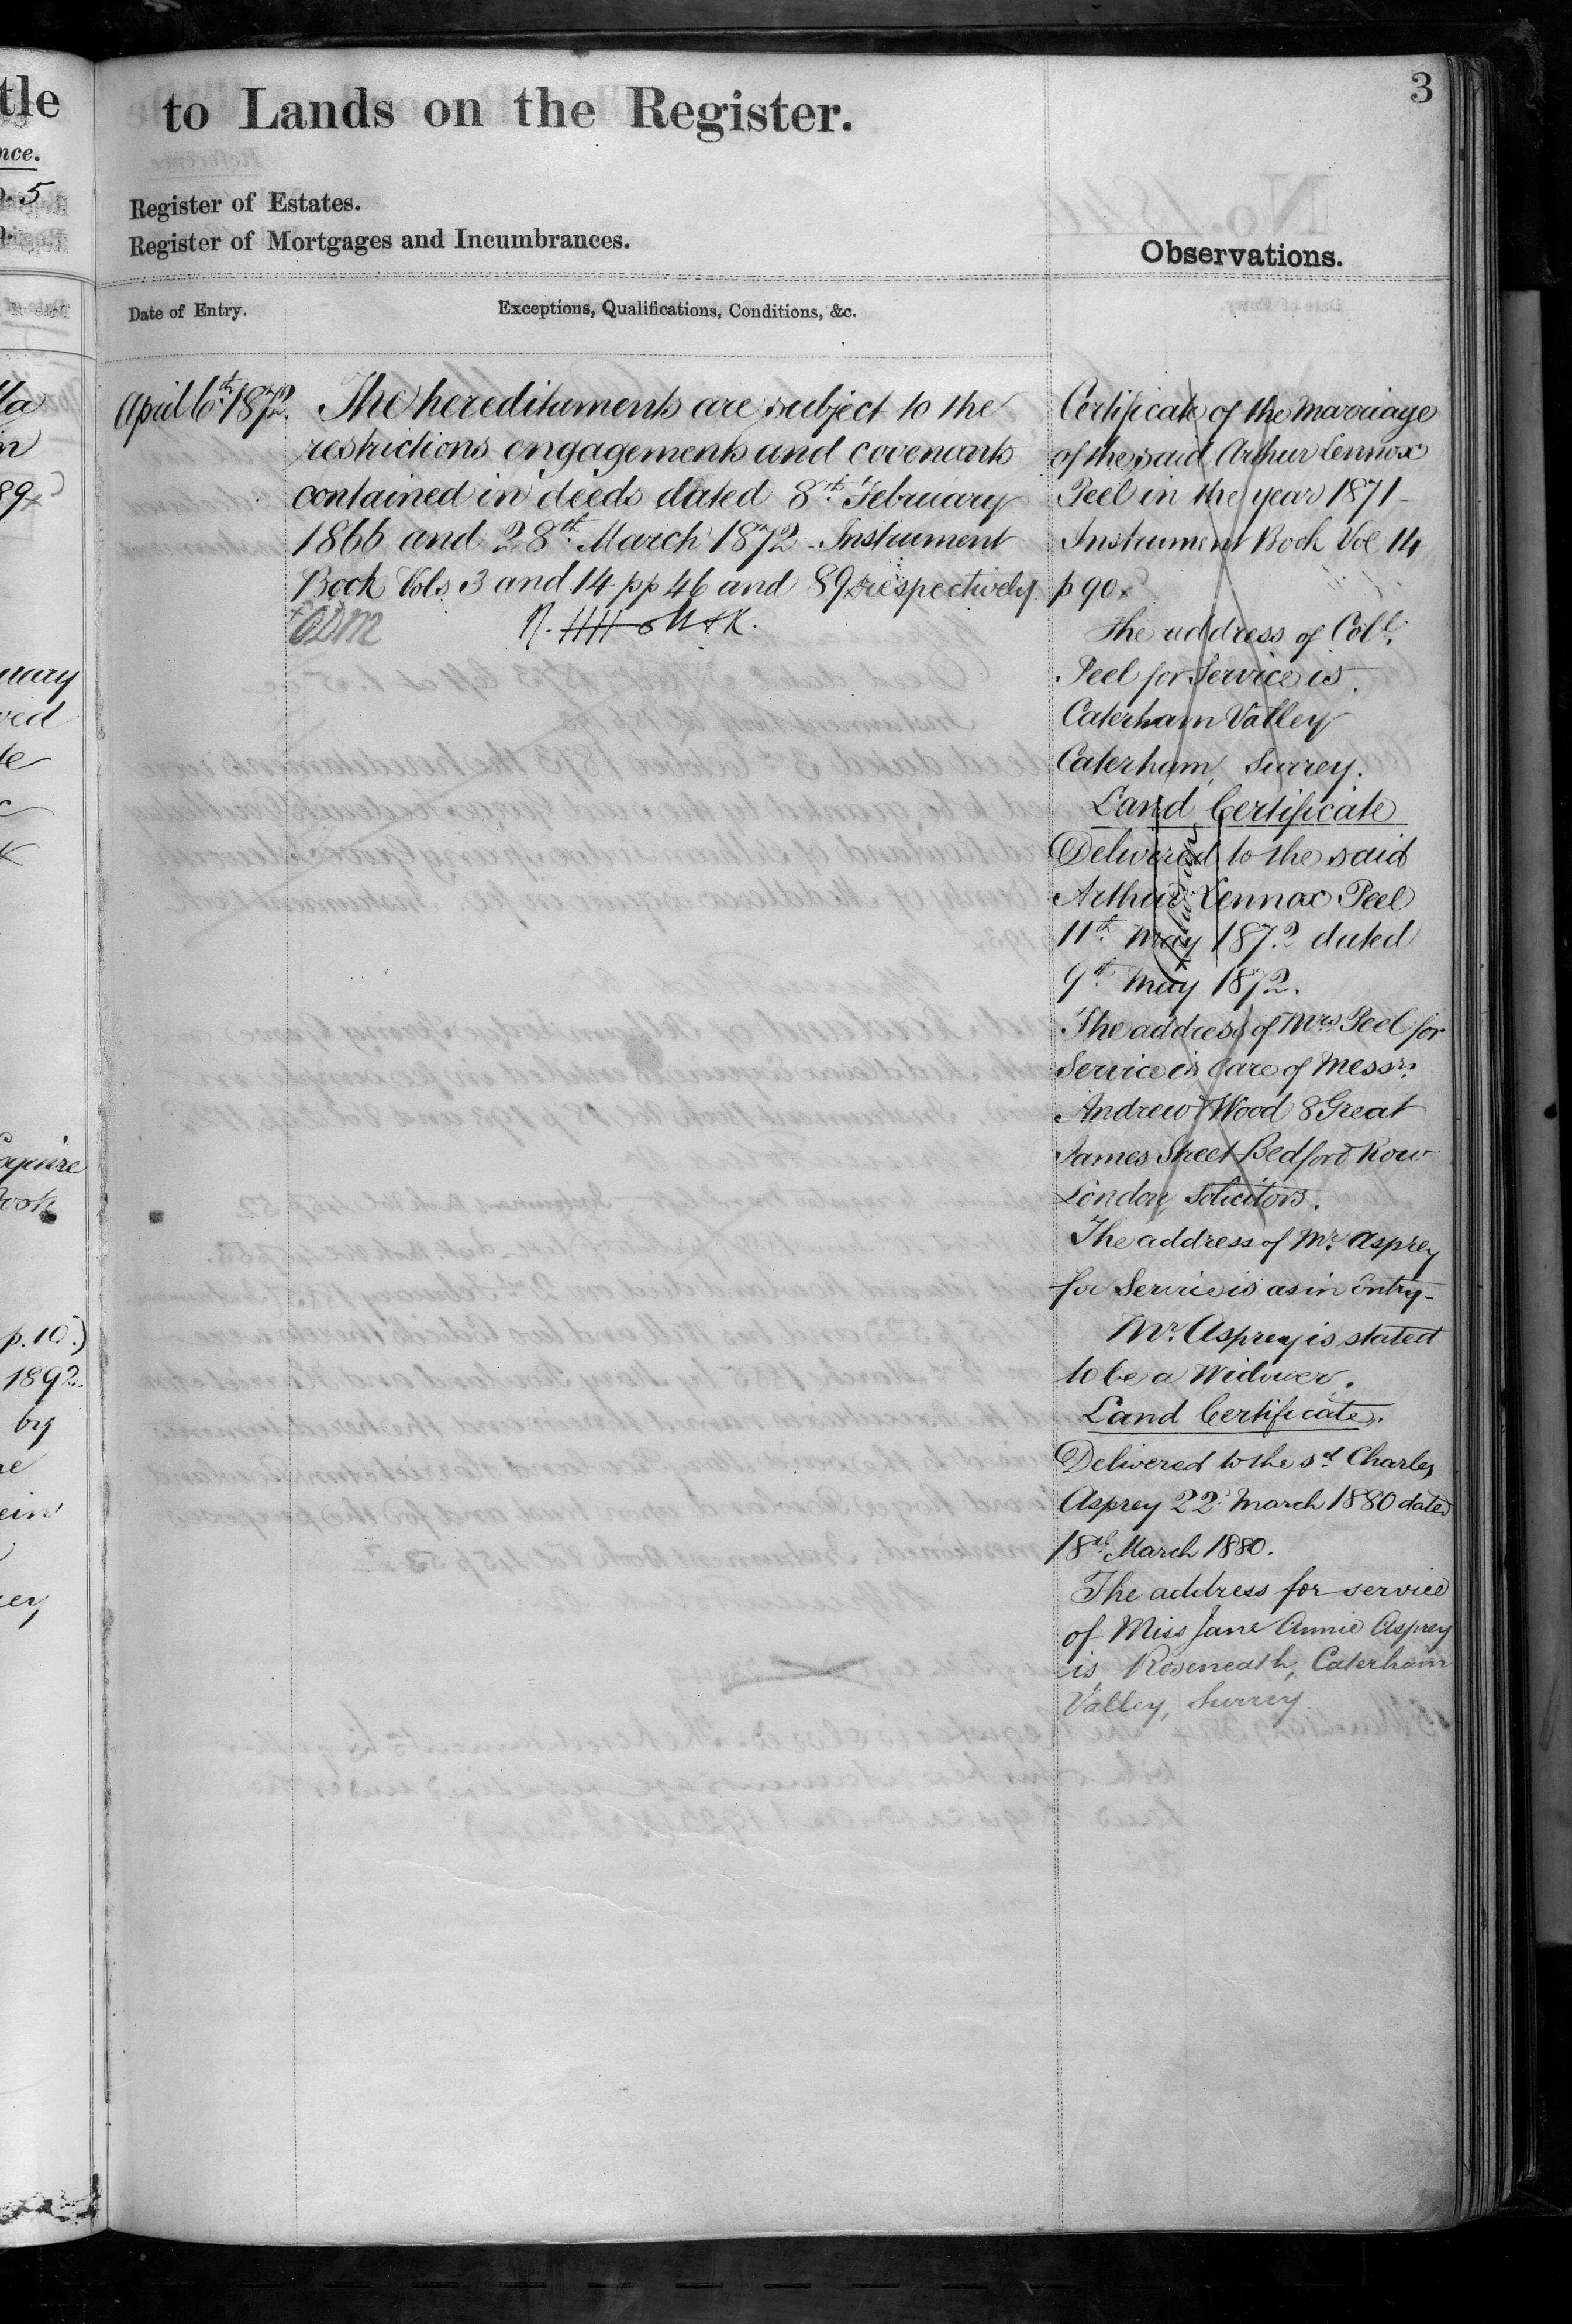 3
to Lands on the Register.
Register of Estates.
Register of Mortgages and Incumbrances.
Observations.
Date of Entry.
Exceptions, Qualifications, Conditions, &c.
April 6th 1872.
The hereditaments are subject to the
restrictions engagements and covenants
contained in deeds dated 8th February
1866 and 28th March 1872 - Instrument
Book Vols 3 and 14 pp 46 and 89x respectively.
Certificate of the Marriage
of the said Arthur Lennox
Peel in the year 1871 -
Instrument Book Vol 14
p 90x
The address of Coll.
Peel for Service is
Caterham Valley
Caterham, Surrey.
Land Certificate
Delivered to the said
Arthur Lennox Peel
11th May 1872 dated
9th May 1872.
The address of Mrs Peel for
Service is Care of Messrs.
Andrew & Wood 8 Great
James Street Bedford Row
London, Solicitors.
The address of Mr. Asprey
for Service is as in Entry -
Mr. Asprey is stated
to be a Widower.
Land Certificate.
Delivered to the sd. Charles
Asprey 22d March 1880 dated
18th March 1880.
The address for service
of Miss Jane Annie Asprey
is, Roseneath, Caterham
Valley, Surrey.
tle
nce.
5
89x
ved
p. 10.)
1892.
by